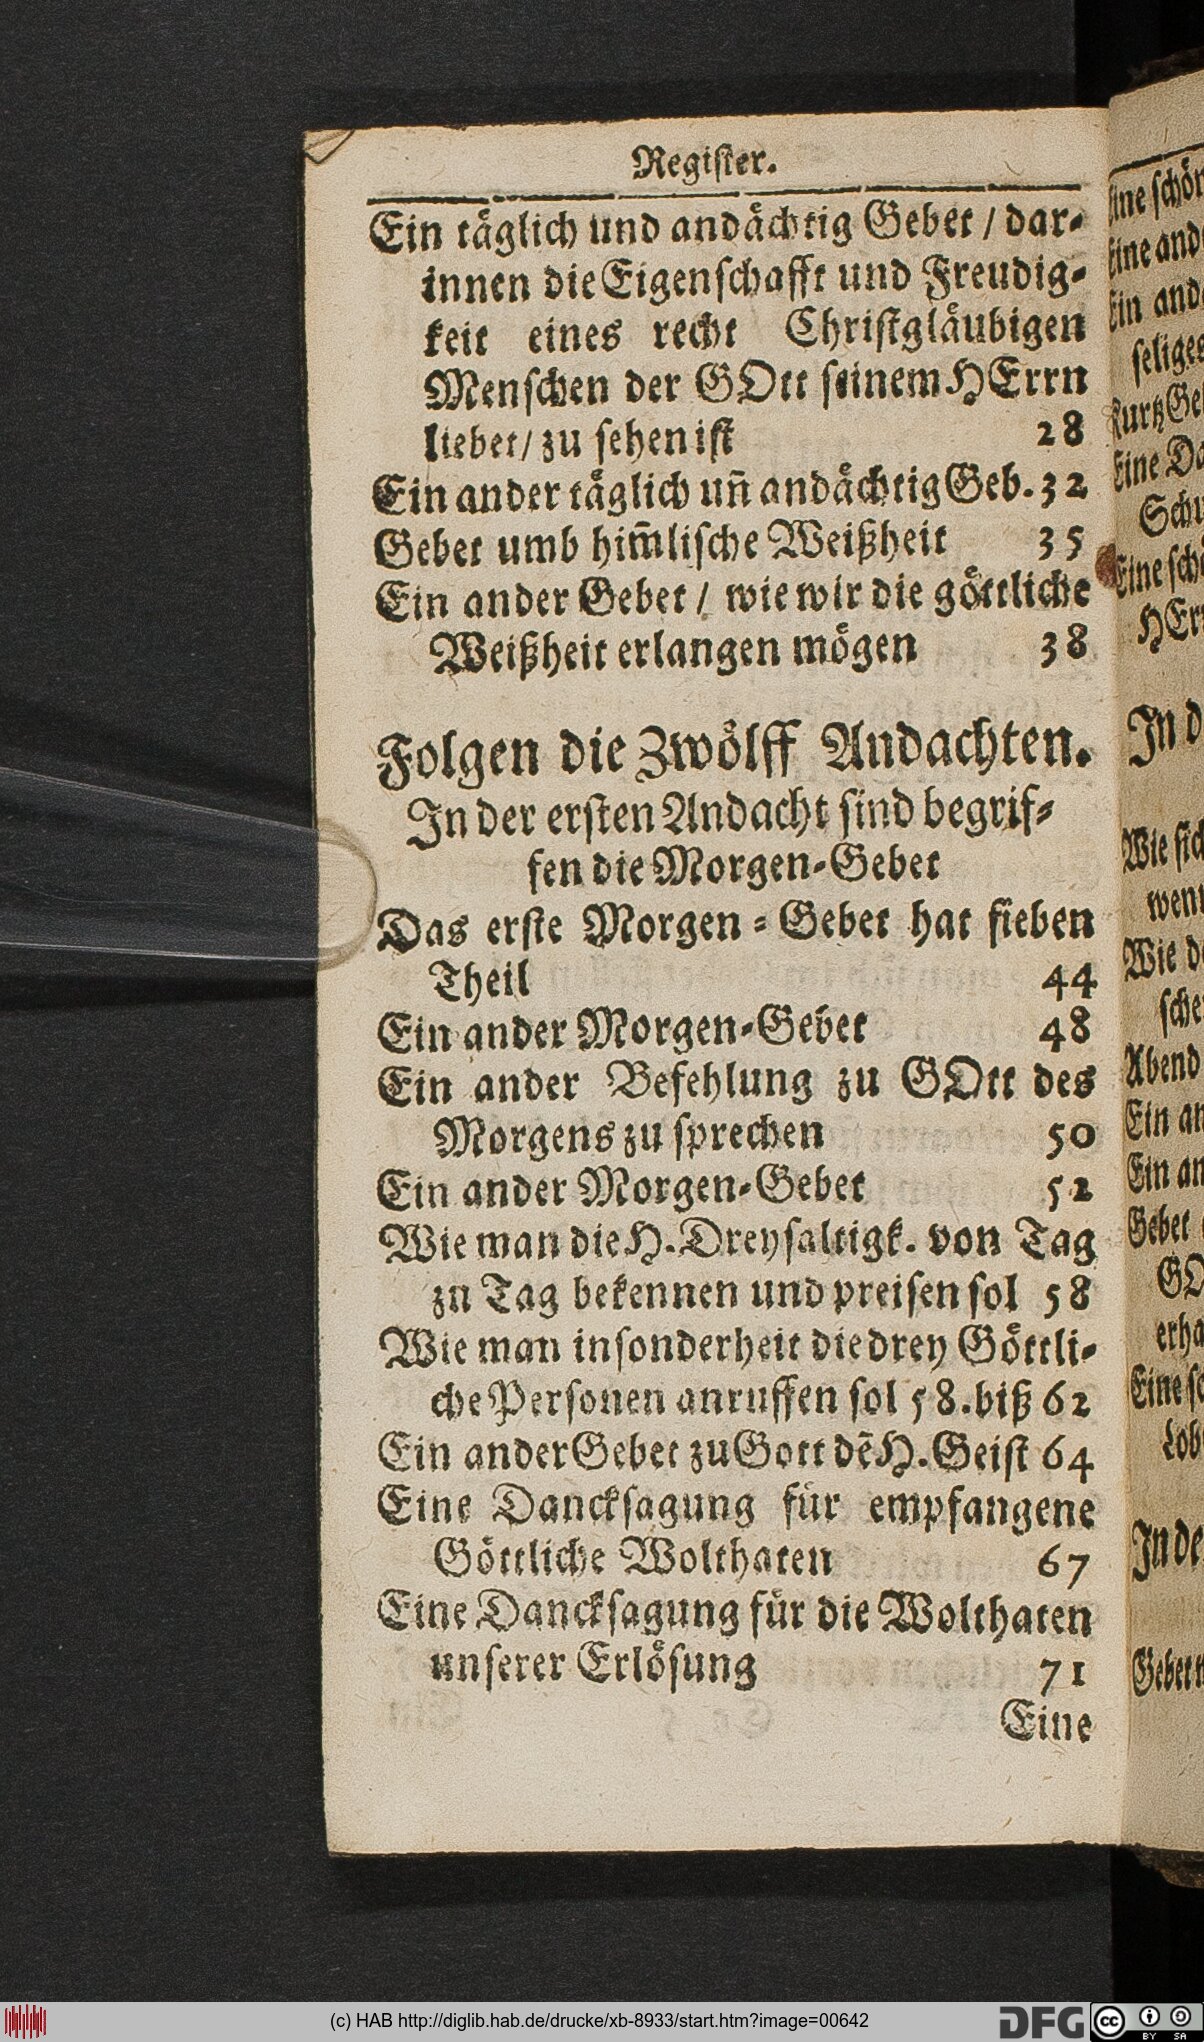 Register.
Ein täglich und andächtig Gebet / dar-
innen die Eigenschafft und Freudig-
keit eines recht Christgläubigen
Menschen der GOtt seinem HErrn
liebet / zu sehen ist 28
Ein ander täglich un̄ andächtig Geb. 32
Gebet umb him̄lische Weißheit 35
Ein ander Gebet / wie wir die göttliche
Weißheit erlangen mögen 38
Folgen die Zwölff Andachten.
In der ersten Andacht sind begrif-
fen die Morgen-Gebet
Das erste Morgen-Gebet hat sieben
Theil 44
Ein ander Morgen-Gebet 48
Ein ander Befehlung zu GOtt des
Morgens zu sprechen 50
Ein ander Morgen-Gebet 52
Wie man die H. Dreyfaltigk. von Tag
zu Tag bekennen und preisen sol 58
Wie man insonderheit die drey Göttli-
che Personen anruffen sol 58. biß 62
Ein ander Gebet zu Gott dē H. Geist 64
Eine Dancksagung für empfangene
Göttliche Wolthaten 67
Eine Dancksagung für die Wolthaten
unserer Erlösung 71
Eine
(c) HAB http://diglib.hab.de/drucke/xb-8933/start.htm?image=00642
DFG
cc
BY SA